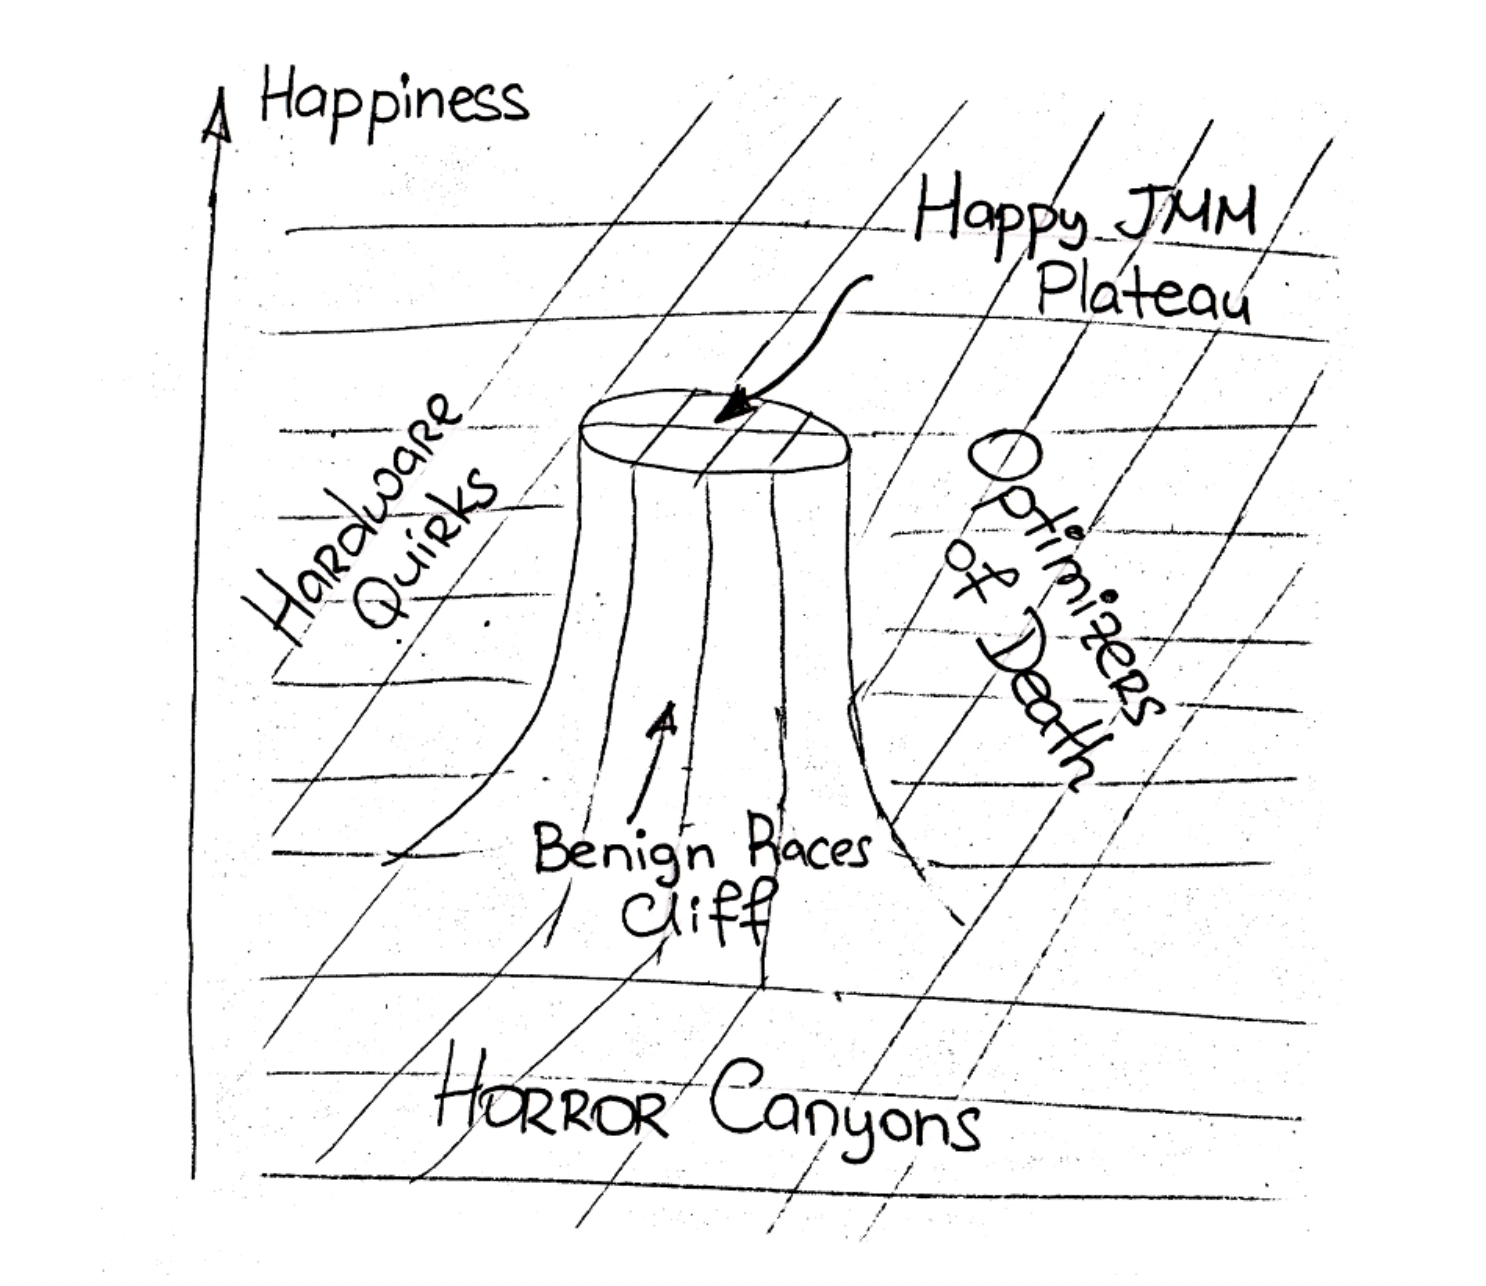 Happiness
Happy JMM
Plateau
Hardware
Quirks
Optimizers
of Death
Benign Races
Cliff
Horror Canyons